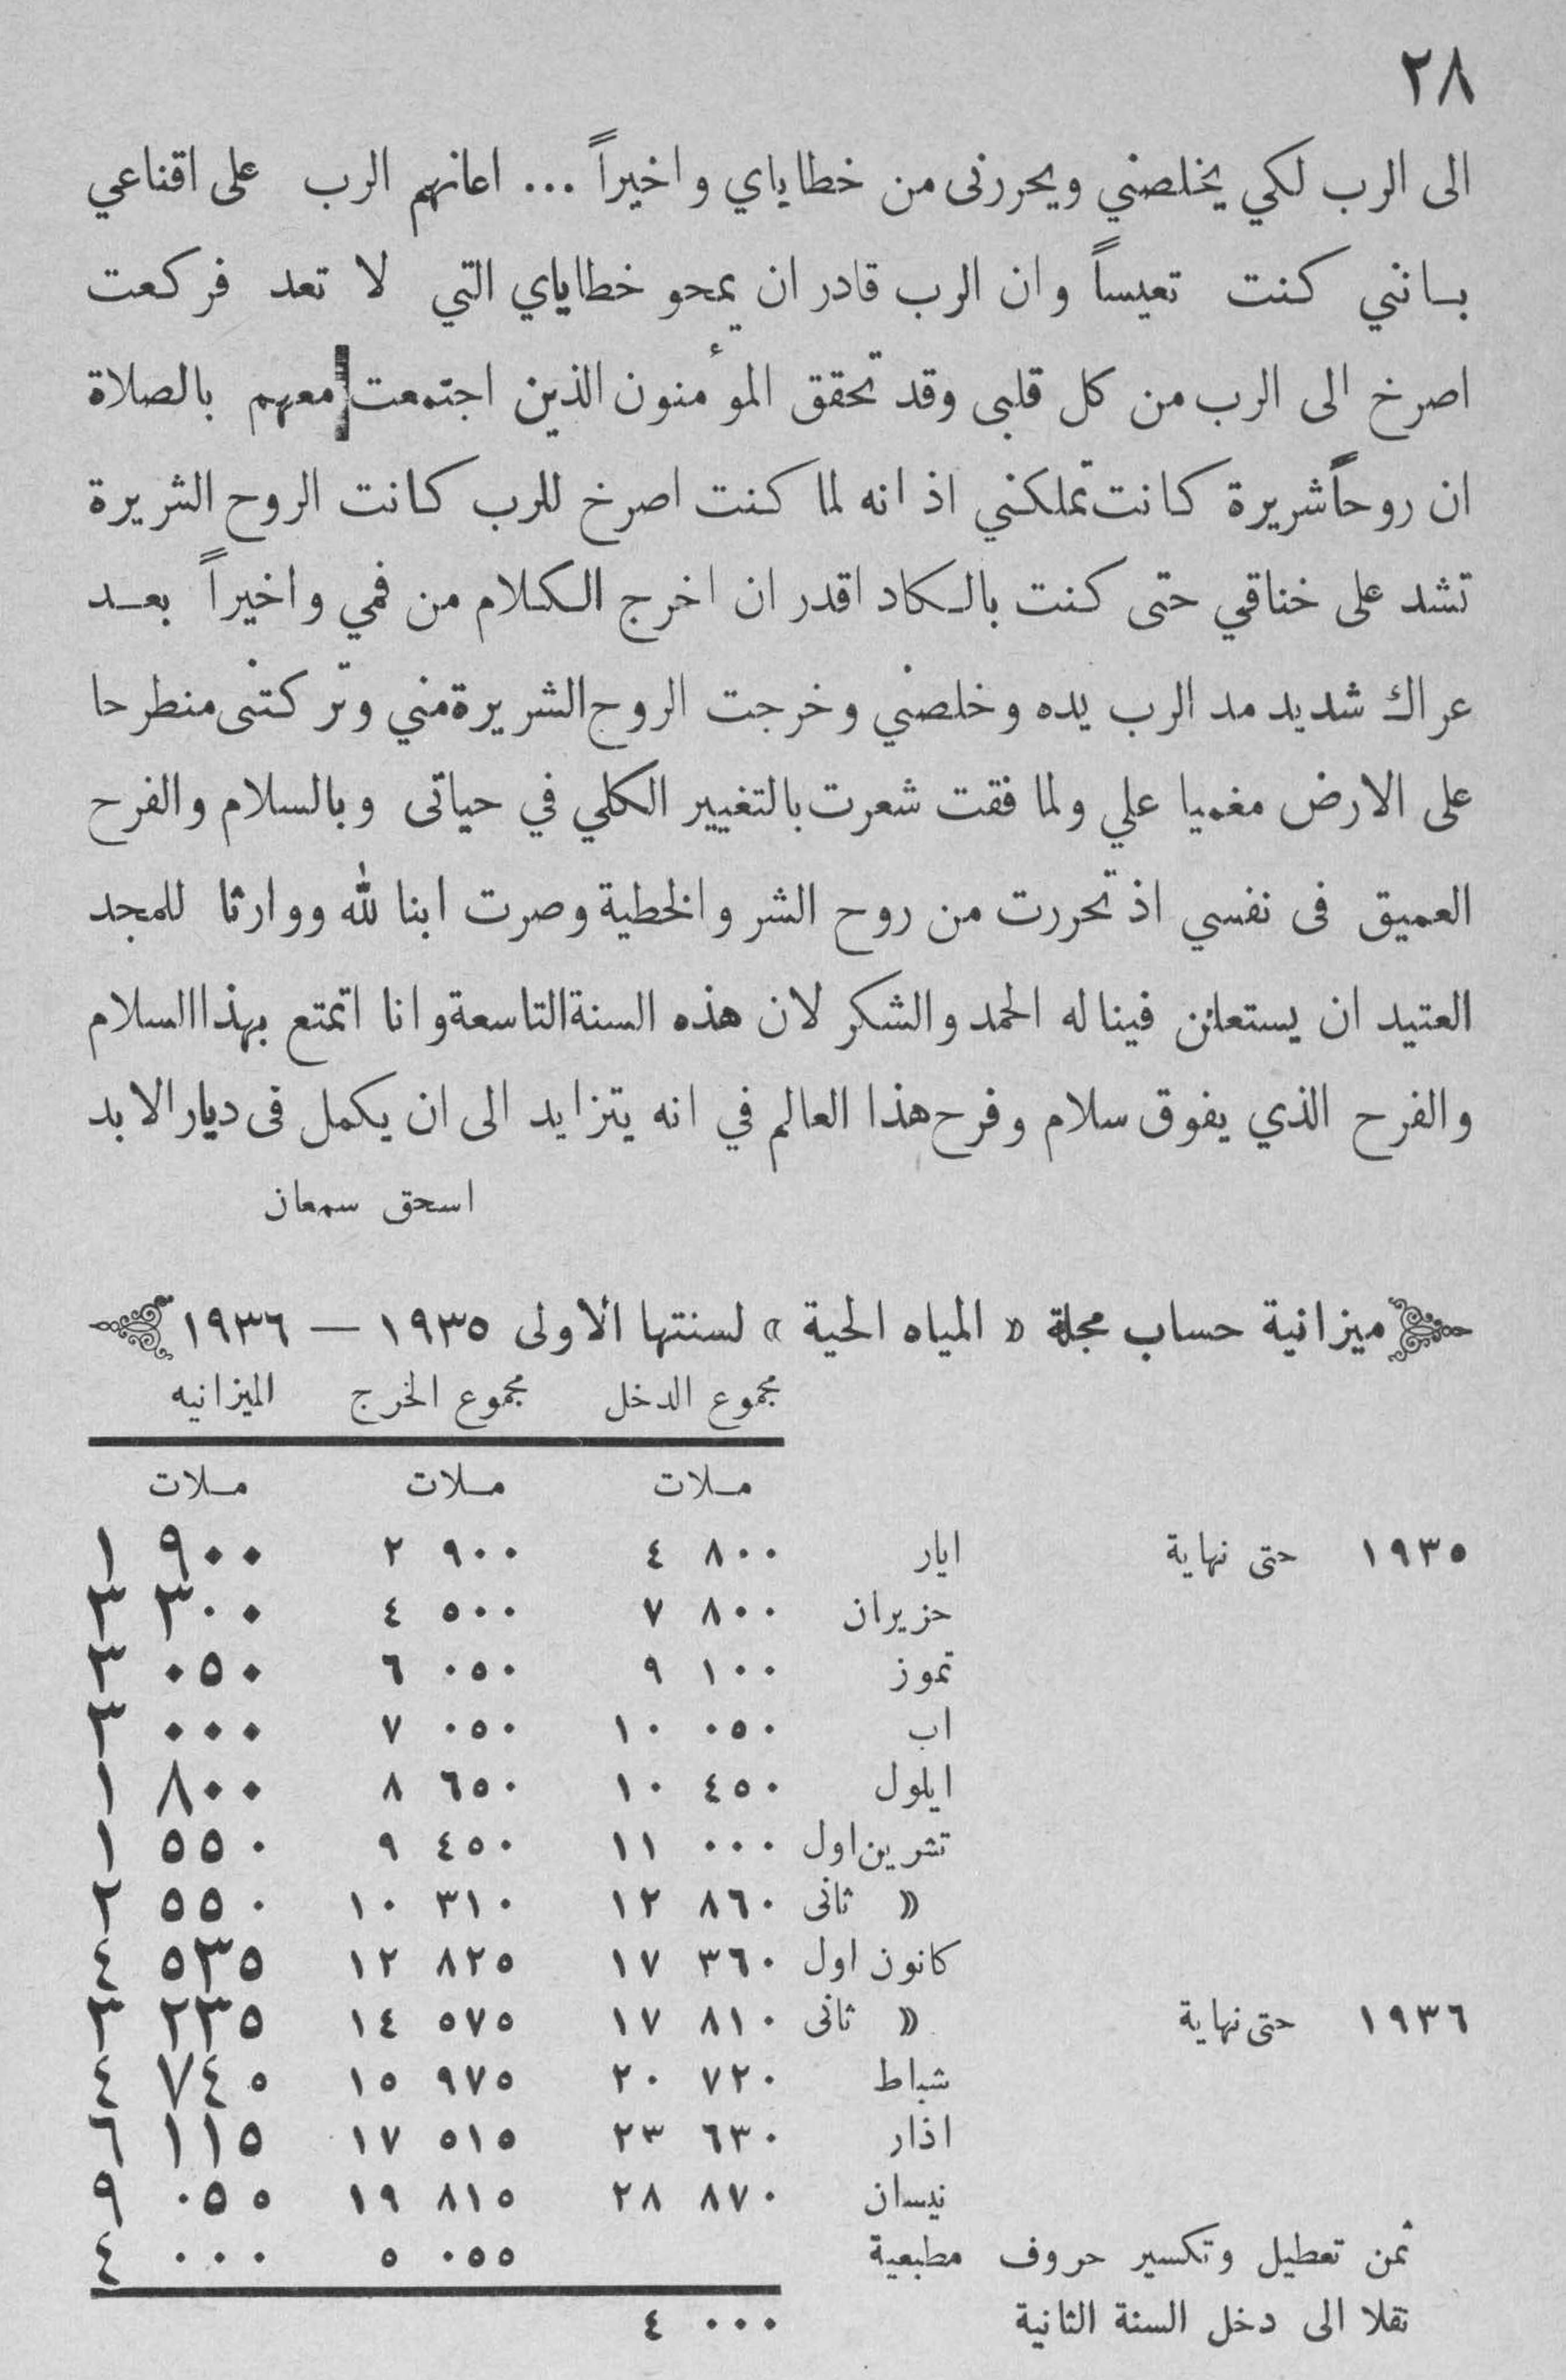 ٢٨
الى الرب لكي يخلصني ويحررنى من خطاياي واخيراً ... اعانهم الرب على اقناعي
بـانني كنت تعيساً وان الرب قادر ان يمحو خطاياي التي لا تعد فركعت
اصرخ الى الرب من كل قلبى وقد تحقق المؤمنون الذين اجتمعت معهم بالصلاة
ان روحاً شريرة كانت تملكني اذ انه لما كنت اصرخ للرب كانت الروح الشريرة
تشد على خناقي حتى كنت بالكاد اقدر ان اخرج الكلام من فمي واخيراً بعـد
عراك شديد مد الرب يده وخلصني وخرجت الروح الشريرة مني وتركتنى منطرحا
على الارض مغميا علي ولما فقت شعرت بالتغيير الكلي في حياتى وبالسلام والفرح
العميق فى نفسي اذ تحررت من روح الشر والخطية وصرت ابنا لله ووارثا للمجد
العتيد ان يستعلن فينا له الحمد والشكر لان هذه السنة التاسعة وانا اتمتع بهذا السلام
والفرح الذي يفوق سلام وفرح هذا العالم في انه يتزايد الى ان يكمل فى ديار الابد
اسحق سمعان
ميزانية حساب مجلة « المياه الحية » لسنتها الاولى ١٩٣٥ — ١٩٣٦
مجموع الدخل مجموع الخرج الميزانيه
مـلات مـلات مـلات
١٩٣٥ حتى نهاية ايار ٤ ٨٠٠ ٢ ٩٠٠ ١ ٩٠٠
حزيران ٧ ٨٠٠ ٤ ٥٠٠ ٣ ٣٠٠
تموز ٩ ١٠٠ ٦ ٠٥٠ ٣ ٠٥٠
اب ١٠ ٠٥٠ ٧ ٠٥٠ ٣ ٠٠٠
ايلول ١٠ ٤٥٠ ٨ ٦٥٠ ١ ٨٠٠
تشرين اول ١١ ٠٠٠ ٩ ٤٥٠ ١ ٥٥٠
« ثانى ١٢ ٨٦٠ ١٠ ٣١٠ ٢ ٥٥٠
كانون اول ١٧ ٣٦٠ ١٢ ٨٢٥ ٤ ٥٣٥
١٩٣٦ حتى نهاية « ثانى ١٧ ٨١٠ ١٤ ٥٧٥ ٣ ٢٣٥
شباط ٢٠ ٧٢٠ ١٥ ٩٧٥ ٤ ٧٤٥
اذار ٢٣ ٦٣٠ ١٧ ٥١٥ ٦ ١١٥
نيسان ٢٨ ٨٧٠ ١٩ ٨١٥ ٩ ٠٥٥
ثمن تعطيل وتكسير حروف مطبعية ٥ ٠٥٥ ٤ ٠٠٠
نقلا الى دخل السنة الثانية ٤ ٠٠٠